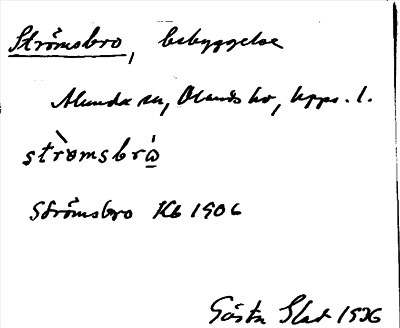 Strömsbro, bebyggelse
Alunda sn, Olands hd, Upps. l.
strò̀msbrá̱
Strömsbro Kb 1906
Gösta Slat 1936